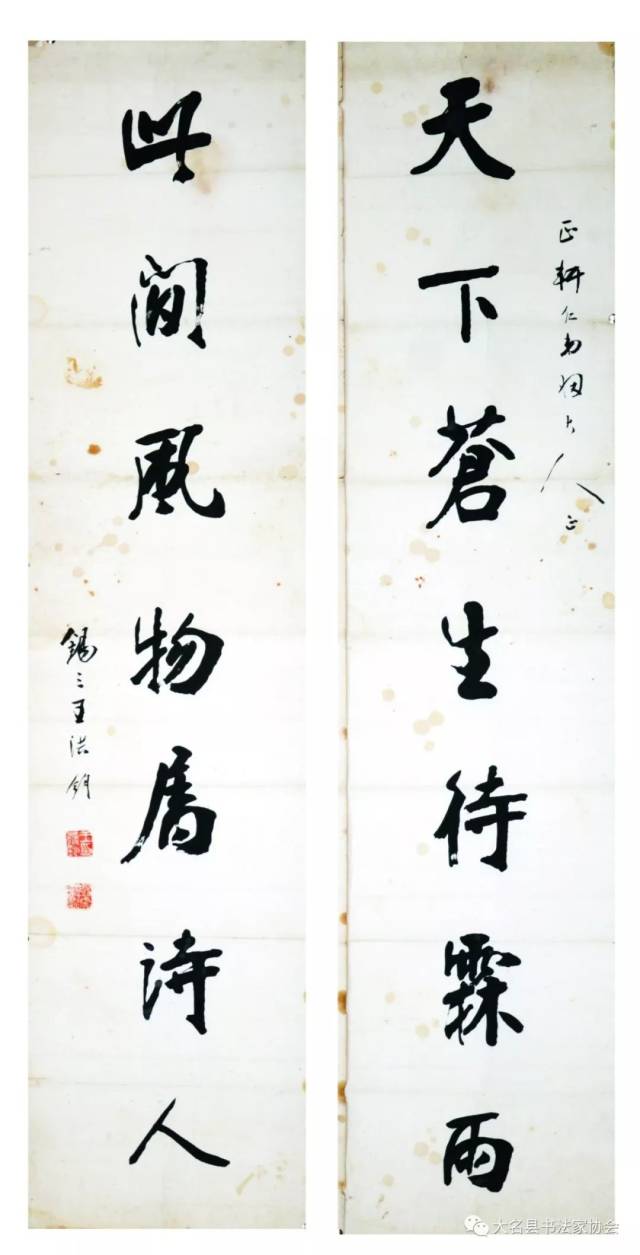 天下蒼生待霖雨
正軒仁弟姻大人正
此間風物屬詩人
錫三王洪鈞
大名县书法家协会